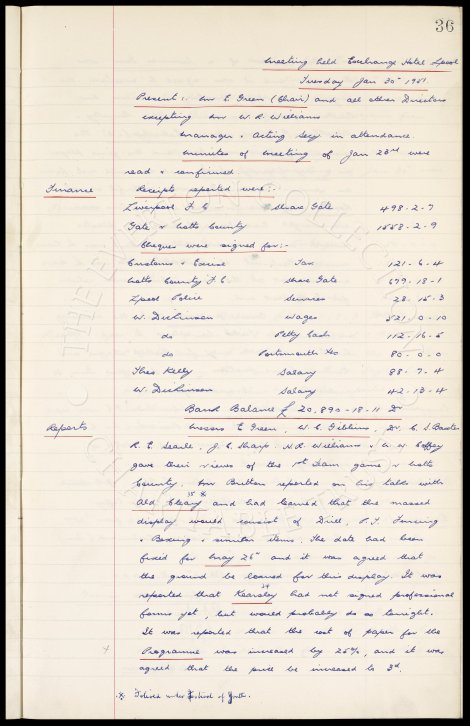 36
Meeting held Exchange Hotel Lpool
Tuesday Jan 30th 1951.
Present:- Mr E Green (Chair) and all other Directors
excepting Mr W. R. Williams
Manager & Acting Secy in attendance
Minutes of Meeting of Jan 23rd were
read & confirmed
Finance Receipts reported were:-
Liverpool F C Share Gate 498-2-7
Gate v Notts County 1558-2-9
Cheques were signed for:-
Customs & Excise Tax 121-6-4
Notts County F.C. Share Gate 679-18-1
Lpool Police Services 28-15-3
W. Dickinson Wages 521-0-10
do Petty Cash 112-16-5
do Portsmouth Exs 80-0-0
Theo Kelly Salary 88-7-4
W. Dickinson Salary 42-13-4
Bank Balance £ 20,890-18-11 Dr
Reports Messrs E Green, W. C. Gibbins, Dr. C. S. Baxter
R. E. Searle, J. C. Sharp, N. R. Williams & W. N. Coffey
gave their views of the 1st Team game v Notts
County. Mr Britton reported on his talks with
35 *
Ald Cleary and had learned that the massed
display would consist of Drill, P.T. Fencing
& Boxing & similar items. The date had been
fixed for May 26th and it was agreed that
the ground be loaned for this display. It was
34
reported that Kearsley had not signed professional
forms yet, but would probably do so tonight.
It was reported that the cost of paper for the
Programme was increased by 25%, and it was
agreed that the price be increased to 3d.
* Indexed under Festival of Youth.
THE EVERTON COLLECTION